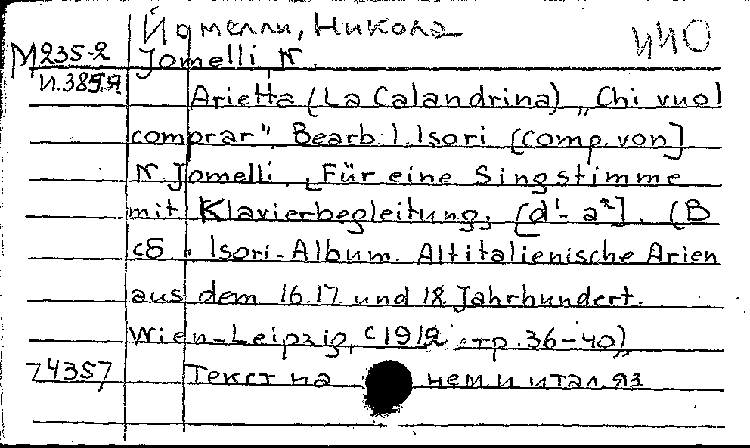 Йомелли, Никола
440
М235-2 Jomelli, N.
И.385.Я Arietta (La Calandrina) „Chi vuol
comprar". Bearb. I. Isori [comp. von]
N. Jomelli. [Für eine Singstimme
mit Klavierbegleitung, [d¹- a²]. (В
сб. Isori-Album. Altitalienische Arien
aus dem 16. 17. und 18. Jahrhundert.
Wien-Leipzig, c1912 стр. 36-40),
74357 Текст на нем и итал. яз